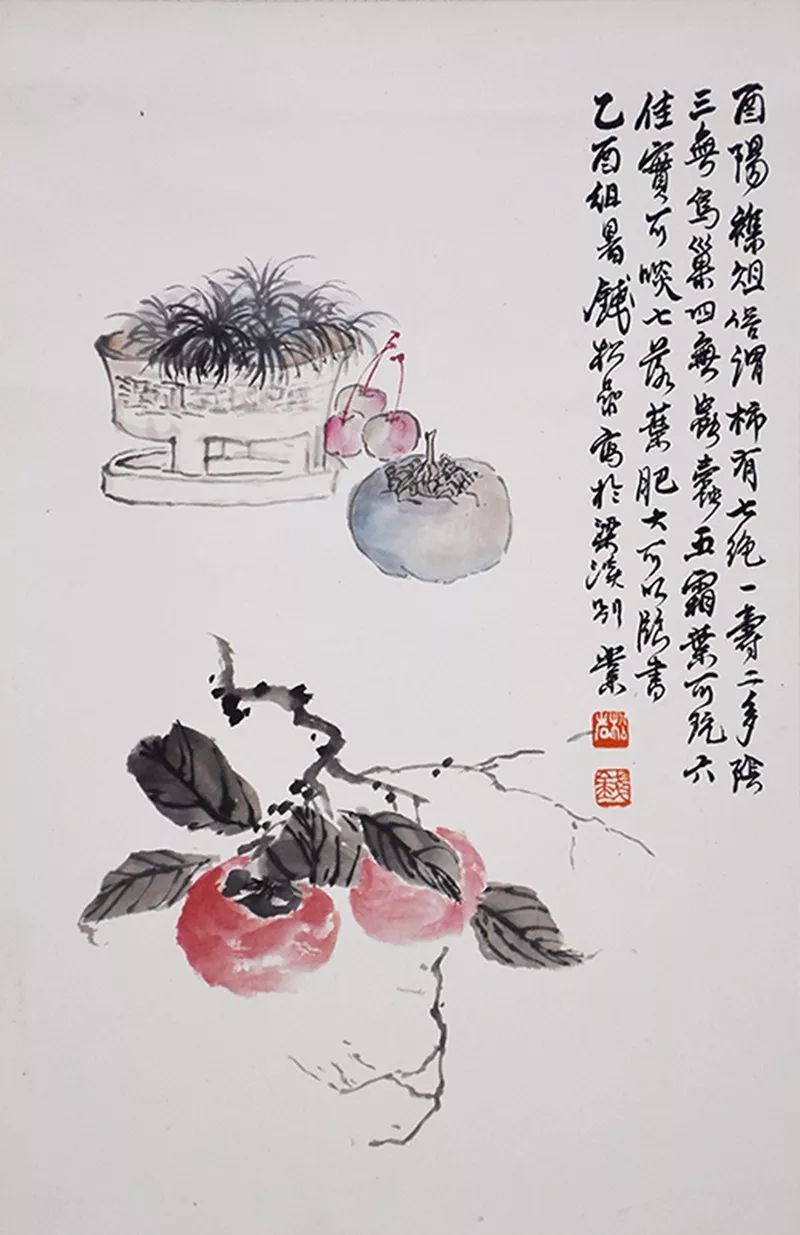 酉陽襍俎俗謂柿有七絶一壽二多陰
三無鳥巢四無蟲蠹五霜葉可玩六
佳實可啖七落葉肥大可以臨書
乙酉組暑錢松嵒寫於梁溪別業
松嵒
錢